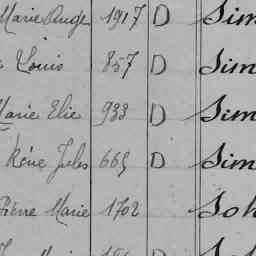 Marie Ange 1917 D Sim
Louis 857 D Sim
Marie Elie 933 D Sim
Réné Jules 665 D Sim
Pierre Marie 1702 Soh